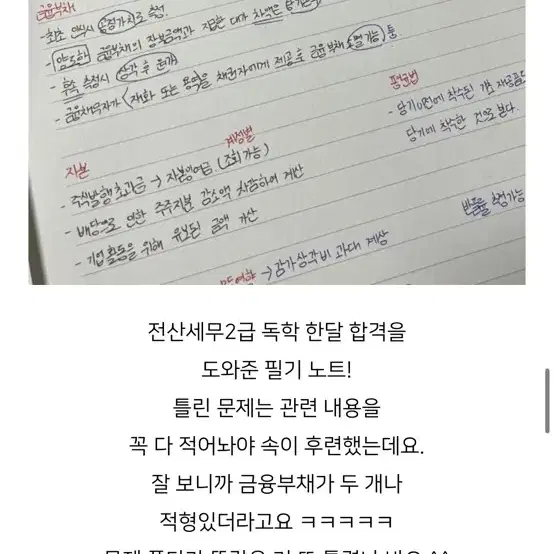 금융부채
- 최초 인식시 공정가치로 측정.
- 양도한 금융부채의 장부금액과 지급한 대가 차액은
- 후속 측정시 상각 후 원가
- 금융채무자가 재화 또는 용역을 채권자에게 제공 후 금융부채 소멸 가능,
평균법
- 당기 이전에 착수된 기초 재공품도
당기에 착수한 것으로 본다.
자본
계정별
- 주식발행초과금 → 자본잉여금 (조회 가능)
- 배당으로 인한 주주지분 감소액 차감하여 계산
- 기업 활동을 위해 유보된 금액 가산
→ 감가상각비 과대 계상
전산세무2급 독학 한달 합격을
도와준 필기 노트!
틀린 문제는 관련 내용을
꼭 다 적어놔야 속이 후련했는데요.
잘 보니까 금융부채가 두 개나
적형있더라고요 ㅋㅋㅋㅋㅋ